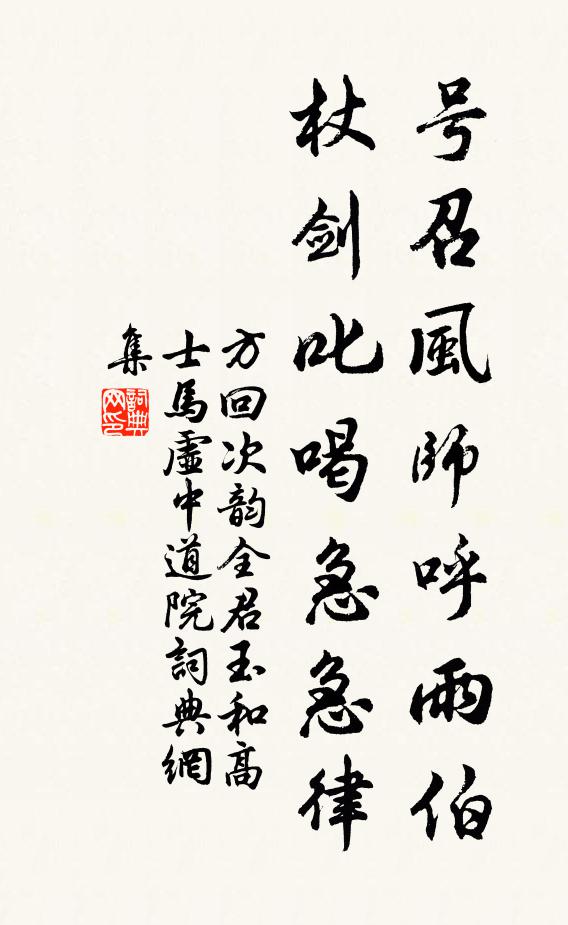 号召風師呼雨伯
杖剑叱喝急急律
方回次韵全君玉和高
士馬虛中道院詞典網
集
詞典
网印